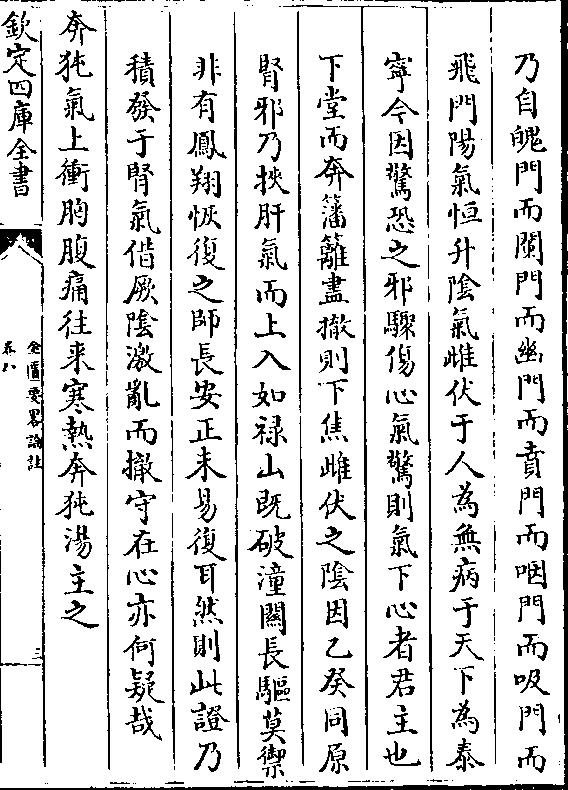 乃自魄門而闌門而幽門而賁門而咽門而吸門而
飛門陽氣恒升陰氣雌伏于人為無病于天下為泰
寧今因驚恐之邪驟傷心氣驚則氣下心者君主也
下堂而奔籓籬盡撤則下焦雌伏之陰因乙癸同原
腎邪乃挾肝氣而上入如禄山既破潼關長驅莫禦
非有鳳翔恢復之師長安正未易復耳然則此證乃
積發于腎氣偕厥陰激亂而撤守在心亦何疑哉
奔㹠氣上衝胷腹痛往来寒熱奔㹠湯主之
欽定四庫全書
金匱要畧論註
卷八
三